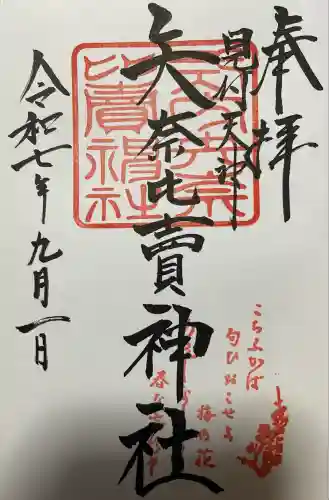 奉拝
見付天神
矢奈比賣神社
令和七年九月一日
矢奈比賣神社
こちふかば
匂ひおこせよ
梅の花